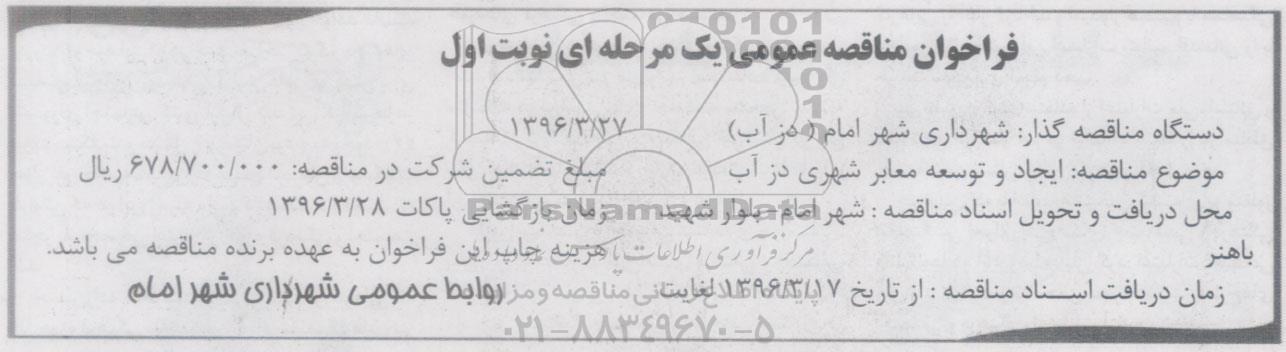 فراخوان مناقصه عمومی یک مرحله ای نوبت اول
دستگاه مناقصه گذار: شهرداری شهر امام (دز آب)
موضوع مناقصه: ایجاد و توسعه معابر شهری دز آب
محل دریافت و تحویل اسناد مناقصه : شهر امام- بلوار شهید
باهنر
زمان دریافت اسناد مناقصه : از تاریخ ۱۳۹۶/۳/۱۷ لغایت
۱۳۹۶/۳/۲۷
مبلغ تضمین شرکت در مناقصه: ۶۷۸/۷۰۰/۰۰۰ ریال
زمان بازگشایی پاکات ۱۳۹۶/۳/۲۸
هزینه چاپ این فراخوان به عهده برنده مناقصه می باشد.
روابط عمومی شهرداری شهر امام
ParsNamadData
مرکز فرآوری اطلاعات
۰۲۱-۸۸۳۴۹۶۷۰-۵